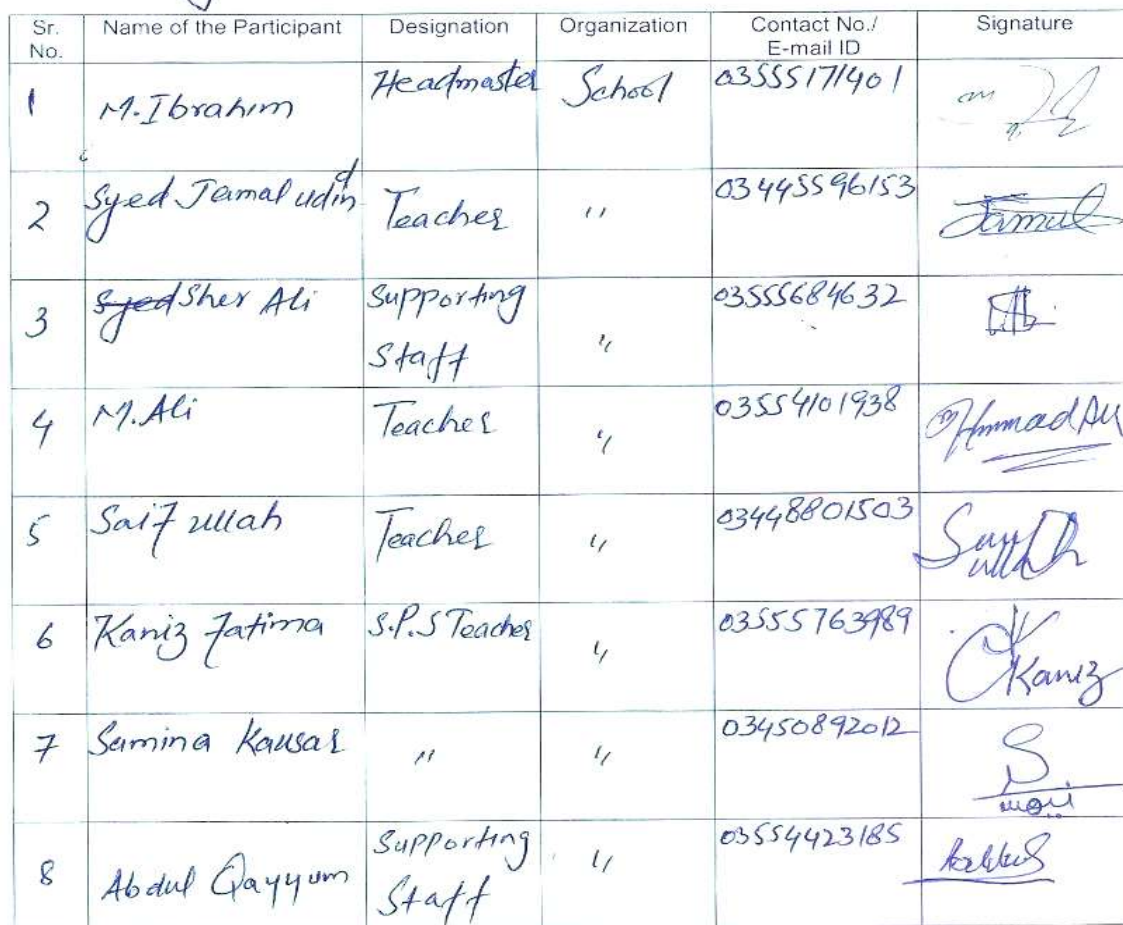 Sr. No. Name of the Participant Designation Organization Contact No./ E-mail ID Signature
1 M. Ibrahim Headmaster School 03555171401
2 Syed Jamal uddin Teacher " 03445596153 Jamal
3 Syed Sher Ali Supporting Staff " 03555684632
4 M. Ali Teacher " 03554101938 Ali
5 Saif ullah Teacher " 03448801503 ullah
6 Kaniz Fatima S.P.S Teacher " 03555763989 Kaniz
7 Samina Kausar " " 03450892012
8 Abdul Qayyum Supporting Staff " 03554423185